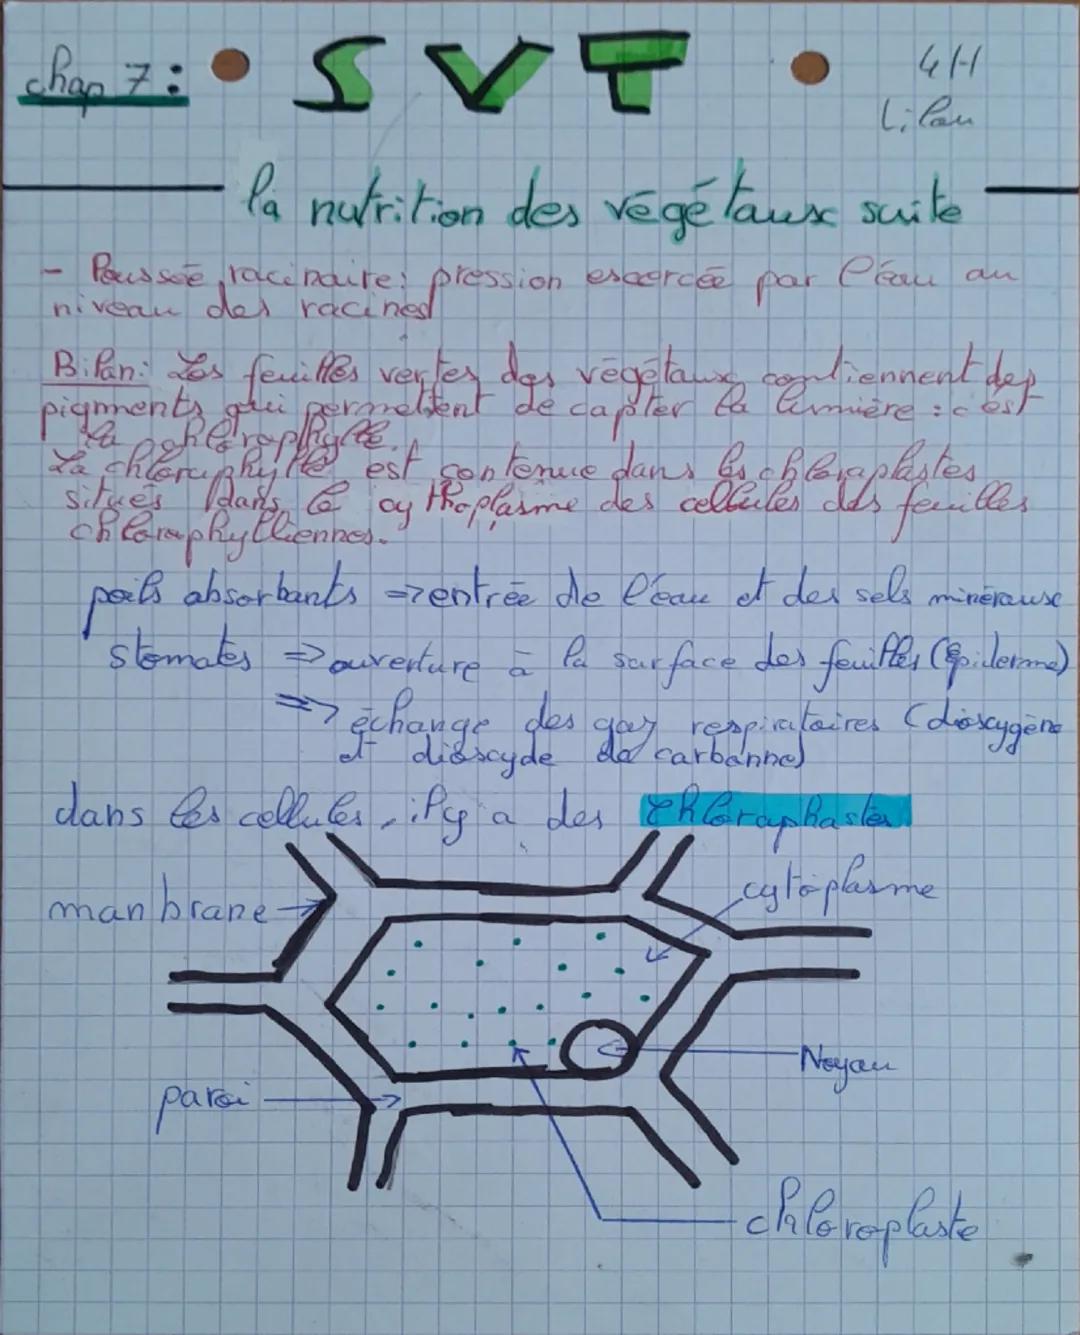 chap 7 : SVT 4H
Lilou
la nutrition des végétaux suite
- Poussée racinaire : pression exercée par l'éau au
niveau des racines
Bilan : Les feuilles vertes des végétaux contiennent des
pigments qui permettent de capter la lumière : c'est
la chlorophylle.
La chlorophylle est contenue dans les chloroplastes
situés dans le cythoplasme des cellules des feuilles
chlorophylliennes.
poils absorbants => entrée de l'éau et des sels minéraux
stomates => ouverture à la surface des feuilles (épiderme)
=> échange des gaz respiratoires (dioxygène
et dioxyde de carbonne)
dans les cellules, il y a des chloraphastes
manbrane
cytoplasme
Noyau
paroi
chloroplaste